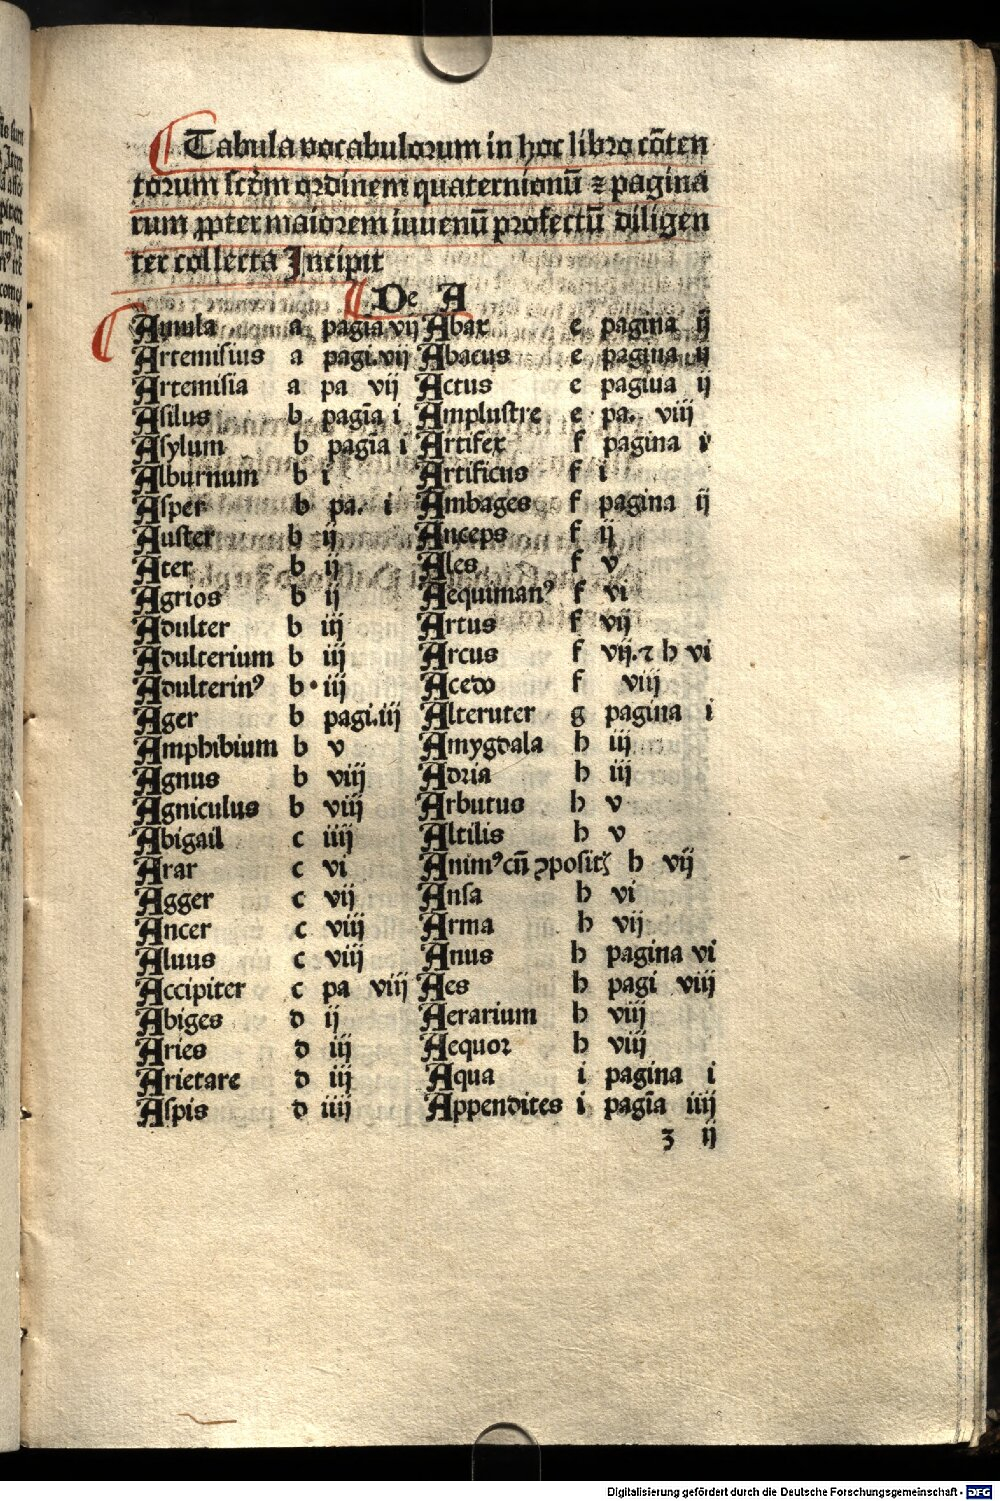 Tabula vocabulorum in hoc libro cōten
torum scďm ordinem quaternionū ⁊ pagina
rum ꝓpter maiorem iuvenū profectū diligen
ter collecta Incipit
De A
Amula a pagīa vij
Artemisius a pagi. vij
Artemisia a pa vij
Asilus b pagīa i
Asylum b pagīa i
Alburnum b i
Asper b pa. i
Auster b ij
Ater b ij
Agrios b ij
Adulter b iij
Adulterium b iij
Adulterinꝰ b iij
Ager b pagi. iij
Amphibium b v
Agnus b viij
Agniculus b viij
Abigail c iiij
Arar c vi
Agger c vij
Ancer c viij
Aluus c viij
Accipiter c pa viij
Abiges d ij
Aries d iij
Arietare d iij
Aspis d iiij
Abax e pagina ij
Abacus e pagina ij
Actus e pagiua ij
Amplustre e pa. viij
Artifex f pagina i
Artificus f i
Ambages f pagina ij
Anceps f ij
Ales f v
Aequimanꝰ f vi
Artus f vij
Arcus f vij. ⁊ h vi
Acedo f viij
Alteruter g pagina i
Amygdala h iij
Adria h iij
Arbutus h v
Altilis h v
Animꝰ cū ꝓposit h vij
Ansa h vi
Arma h vij
Anus h pagina vi
Aes h pagi viij
Aerarium h viij
Aequor h viij
Aqua i pagina i
Appendites i pagīa iiij
ʒ ij
Digitalisierung gefördert durch die Deutsche Forschungsgemeinschaft - DFG